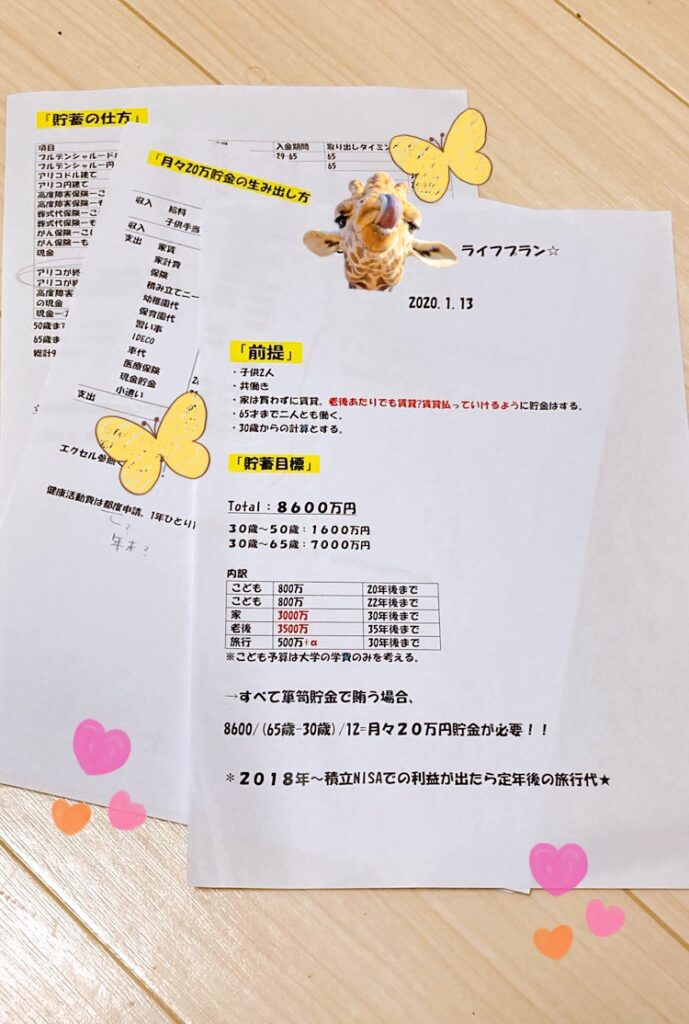 「貯蓄の仕方」
項目
入金期間 取り出しタイミン
プルデンシャルードル
29-65 65
プルデンシャルー円
65
アリコドル建て
アリコ円建て
高度障害保険ーこ
高度障害保険ーも
葬式代保険ーこ
葬式代保険ーも
がん保険ーこ
がん保険ーも
現金
アリコが終
アリコが終
高度障害
の現金
現金ー
50歳まで
65歳ま
総計9
「月々20万貯金の生み出し方
収入 給料
子供手当
収入
支出 家賃
家計費
保険
積み立てニー
幼稚園代
保育園代
習い事
IDECO
車代
医療保険
現金貯金
支出 小遣い
エクセル参照
健康活動費は都度申請。1年ひとり1
年末?
ライフプラン☆
2020.1.13
「前提」
・子供2人
・共働き
・家は買わずに賃貸。老後あたりでも賃貸?賃貸払っていけるように貯金はする。
・65才まで二人とも働く。
・30歳からの計算とする。
「貯蓄目標」
Total:8600万円
30歳~50歳:1600万円
30歳~65歳:7000万円
内訳
こども 800万 20年後まで
こども 800万 22年後まで
家 3000万 30年後まで
老後 3500万 35年後まで
旅行 500万+α 30年後まで
※こども予算は大学の学費のみを考える。
→すべて箪笥貯金で賄う場合、
8600/(65歳-30歳)/12=月々20万円貯金が必要!!
*2018年~積立NISAでの利益が出たら定年後の旅行代★